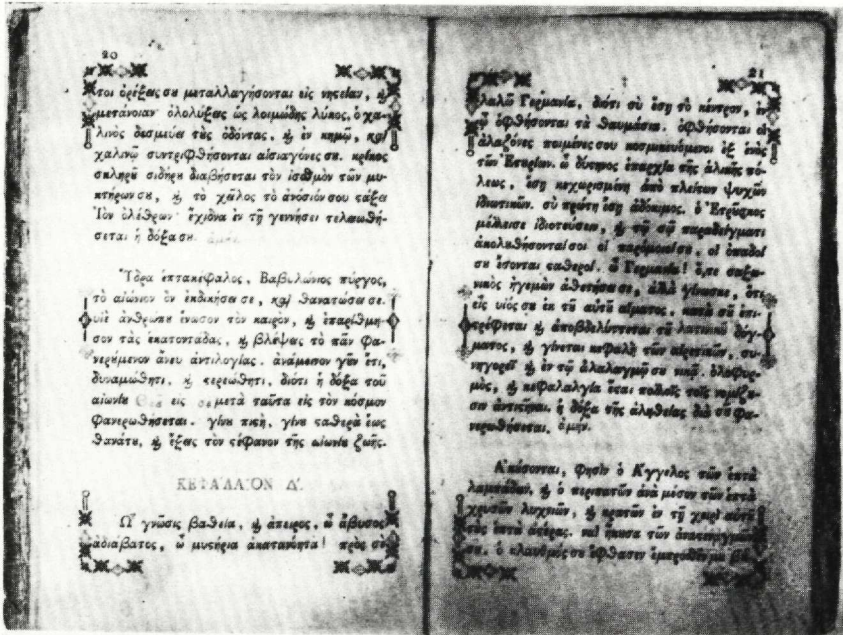 20
τοι ὀρέξεις σου μεταλλαγήσονται εἰς νηστείαν, καὶ
μετάνοιαν ὀλολύξεις ὡς λοιμώδης λύκος, ὁ χα-
λινὸς δεσμεύει τοὺς ὀδόντας, καὶ ἐν κημῷ, καὶ
χαλινῷ συντριφθήσονται αἱ σιαγόνες σου. κρίκος
σκληροῦ σιδήρου διαβήσεται τὸν ἰσθμὸν τῶν μυ-
κτήρων σου, καὶ τὸ χεῖλος τὸ ἀνόσιόν σου τάξει
τὸν ὄλεθρον· ἔχιδνα ἐν τῇ γεννήσει τελειωθή-
σεται ἡ δόξα σου. ἀμήν.
Ὕδρα ἑπτακέφαλος, Βαβυλώνιος πύργος,
τὸ αἰώνιον ὂν ἐκδικήσει σε, καὶ θανατώσει σε.
υἱὲ ἀνθρώπου ἕνωσον τὸν καιρὸν, καὶ ἐπαρίθμη-
σον τὰς ἑκατοντάδας, καὶ βλέψεις τὸ πᾶν φα-
νερώμενον ἄνευ ἀντιλογίας. ἀνάμεινον γοῦν ἔτι,
δυναμώθητι, καὶ στερεώθητι, διότι ἡ δόξα τοῦ
αἰωνίου εἰς μετὰ ταῦτα εἰς τὸν κόσμον
φανερωθήσεται. γίνου πιστὴ, γίνου σταθερὰ ἕως
θανάτου, καὶ ἕξεις τὸν στέφανον τῆς αἰωνίου ζωῆς.
ΚΕΦΑΛΑΙΟΝ Δ΄.
Ὦ γνῶσις βαθεία, καὶ ἄπειρος, ὦ ἄβυσος
ἀδιάβατος, ὦ μυστήρια ἀκατανόητα! πρὸς σὲ
21
λαλῶ Γερμανία, διότι σὺ ἔσῃ τὸ κέντρον, ἐν
ᾧ ὀφθήσονται τὰ θαυμάσια. ὀφθήσονται οἱ
ἀλαζόνες ποιμένες σου κοσμικευόμενοι ἐξ ἑνὸς
τῶν Ἑταρίων. ὦ δύστηνος ἐπαρχία τῆς ἁλικῆς πό-
λεως, ἔσῃ κεχωρισμένη ἀπὸ πλείστων ψυχῶν
ἰδιωτικῶν. σὺ πρώτη ἔσῃ ἀδόκιμος. ὁ Ἑτροῦσκος
ἰδιοτεύσειν, καὶ τῷ σῷ παραδείγματι
ἀκολουθήσονταί σοι οἱ παρόμοιοί σου, οἱ ὀπαδοί
σου ἔσονται σταθεροί. ὦ Γερμανία! ὅ,τε σαξω-
νικὸς ἡγεμὼν ἀθετήσει σε, ἀλλὰ γίνωσκε, ὅτι
εἷς υἱός σου ἐκ τοῦ αὐτοῦ αἵματος. κατὰ σοῦ ἐπι-
στρέφεται καὶ ἀποβδελύττεται τοῦ λατινικοῦ δόγ-
ματος, καὶ γίνεται κεφαλὴ τῶν αἱρετικῶν, συ-
νηγορεῖ καὶ ἐν τῷ ἀλαλαγμῷ σου νικᾷ. ὀλοφυρ-
μὸς, καὶ κεφαλαλγία ἔσται πολλοῖς τοῖς νομίζου-
σιν ἀντικῆναι. ἡ δόξα τῆς ἀληθείας διὰ σοῦ φα-
νερωθήσεται. ἀμήν.
Ἀκούσονται, φησὶν ὁ Ἄγγελος τῶν ἑπτὰ
λαμπάδων, καὶ ὁ περιπατῶν ἀνὰ μέσον τῶν ἑπτὰ
χρυσῶν λυχνιῶν, καὶ κρατῶν ἐν τῇ χειρὶ αὐτοῦ
τοὺς ἑπτὰ ἀστέρας. ναὶ ἤκουσα τῶν ἀναστεναγμῶν
σου. ὁ κλαυθμός σου ἔφθασεν